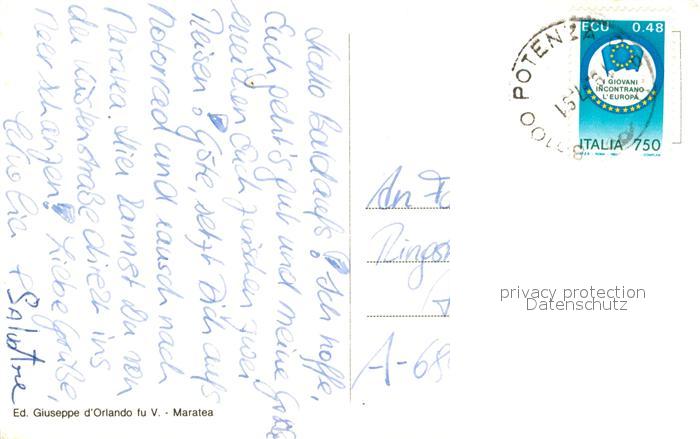 Hallo Baldaufs! Ich hoffe,
Euch geht's gut und meine Grüße
erreichen Euch zwischen zwei
Reisen! Götz, setzt Dich aufs
Motorrad und rausch nach
Maratea. Hier kannst Du von
der Küstenstraße direkt ins
Meer schanzen! Liebe Grüße,
+ Salvatore
Ed. Giuseppe d'Orlando fu V. - Maratea
85100 POTENZA
ECU 0.48
I GIOVANI
INCONTRANO
L'EUROPA
ITALIA 750
An Fa
Ringst
A-68
privacy protection
Datenschutz